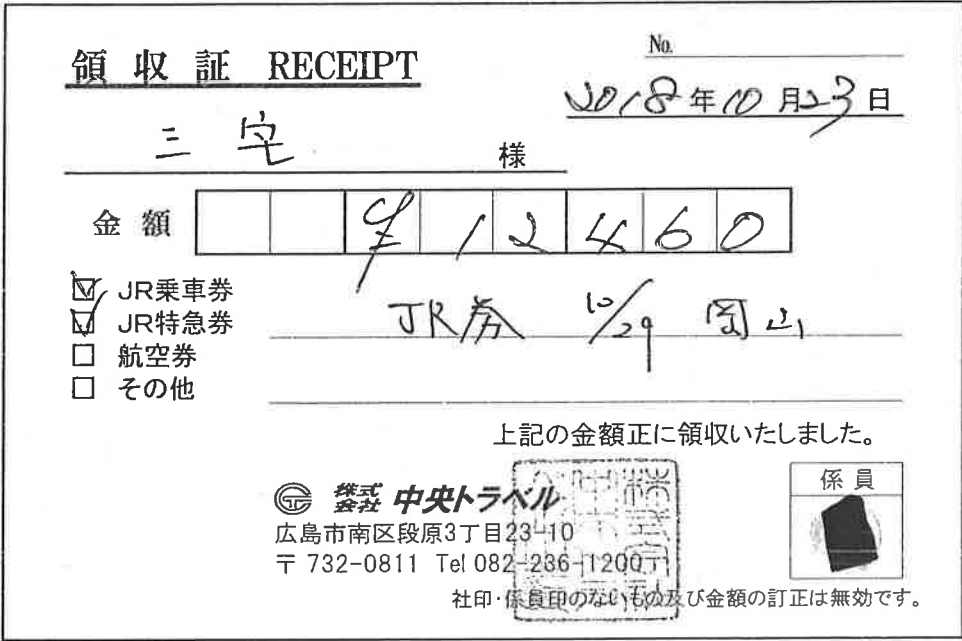 領収証 RECEIPT
No.
2018年10月23日
三宅 様
金額 ¥12460
☑ JR乗車券
☑ JR特急券
JR券 10/29 岡山
□ 航空券
□ その他
上記の金額正に領収いたしました。
係員
株式会社 中央トラベル
広島市南区段原3丁目23-10
〒732-0811 Tel 082-236-1200
社印・係員印のないもの及び金額の訂正は無効です。